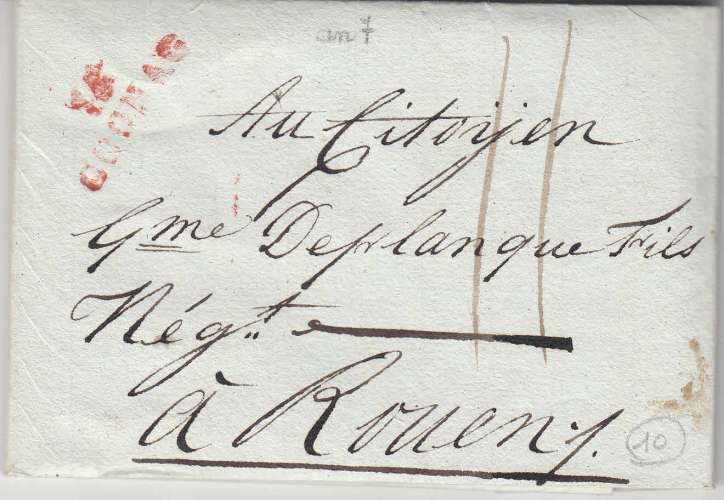 an 7
COGNAC
11
Au Citoyen
Gme Deplanque Fils
Négt
à Rouen
10